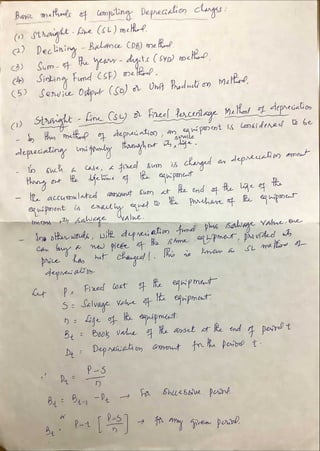 Basic methods of computing Depreciation charges:
(1) Straight-Line (SL) method.
(2) Declining-Balance (DB) method
(3) Sum-of the years-digits (SYD) method
(4) Sinking Fund (SF) method.
(5) Service Output (SO) or Unit Production Method.
(1) Straight-Line (SL) or Fixed Percentage Method of depreciation
- In this method of depreciation, an equipment is considered to be
depreciating uniformly throughout its life.
- In such a case, a fixed sum is charged as depreciation amount
throug out the lifetime of the equipment
- The accumulated sum at the end of the life of the
equipment is exactly equal to the Purchase of the equipment
minus its salvage value.
- In other words, with depreciation fund plus salvage value one
can buy a new piece of the same equipment, provided its
price has not changed! This is known a SL method of
depreciation
Let P = Fixed cost of the equipment
S = Salvage value of the equipment
n = Life of the equipment
Bt = Book value of the asset at the end of period t
Dt = Depreciation amount for the period t.
∴ Dt = P-S / n
Bt = Bt-1 - Dt → For successive period
or
Bt = P-t [P-S / n] → for any given period.